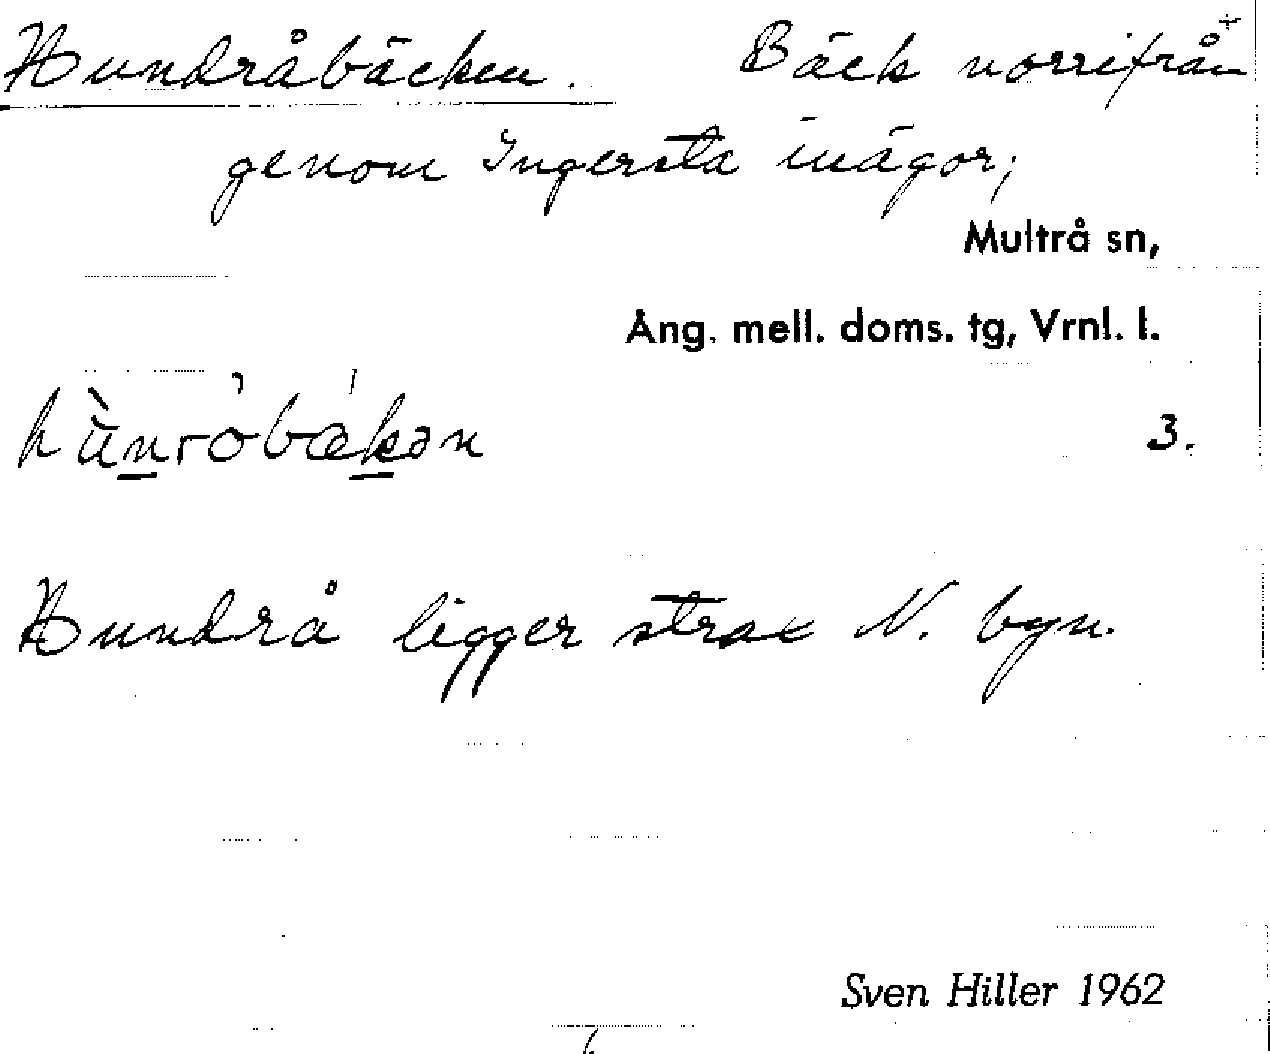 Hundråbäcken. Bäck norrifrån +
genom Ingersta inägor;
Multrå sn,
Ång. mell. doms. tg, Vrnl. l.
3.
Hundrå ligger strax N. byn.
Sven Hiller 1962